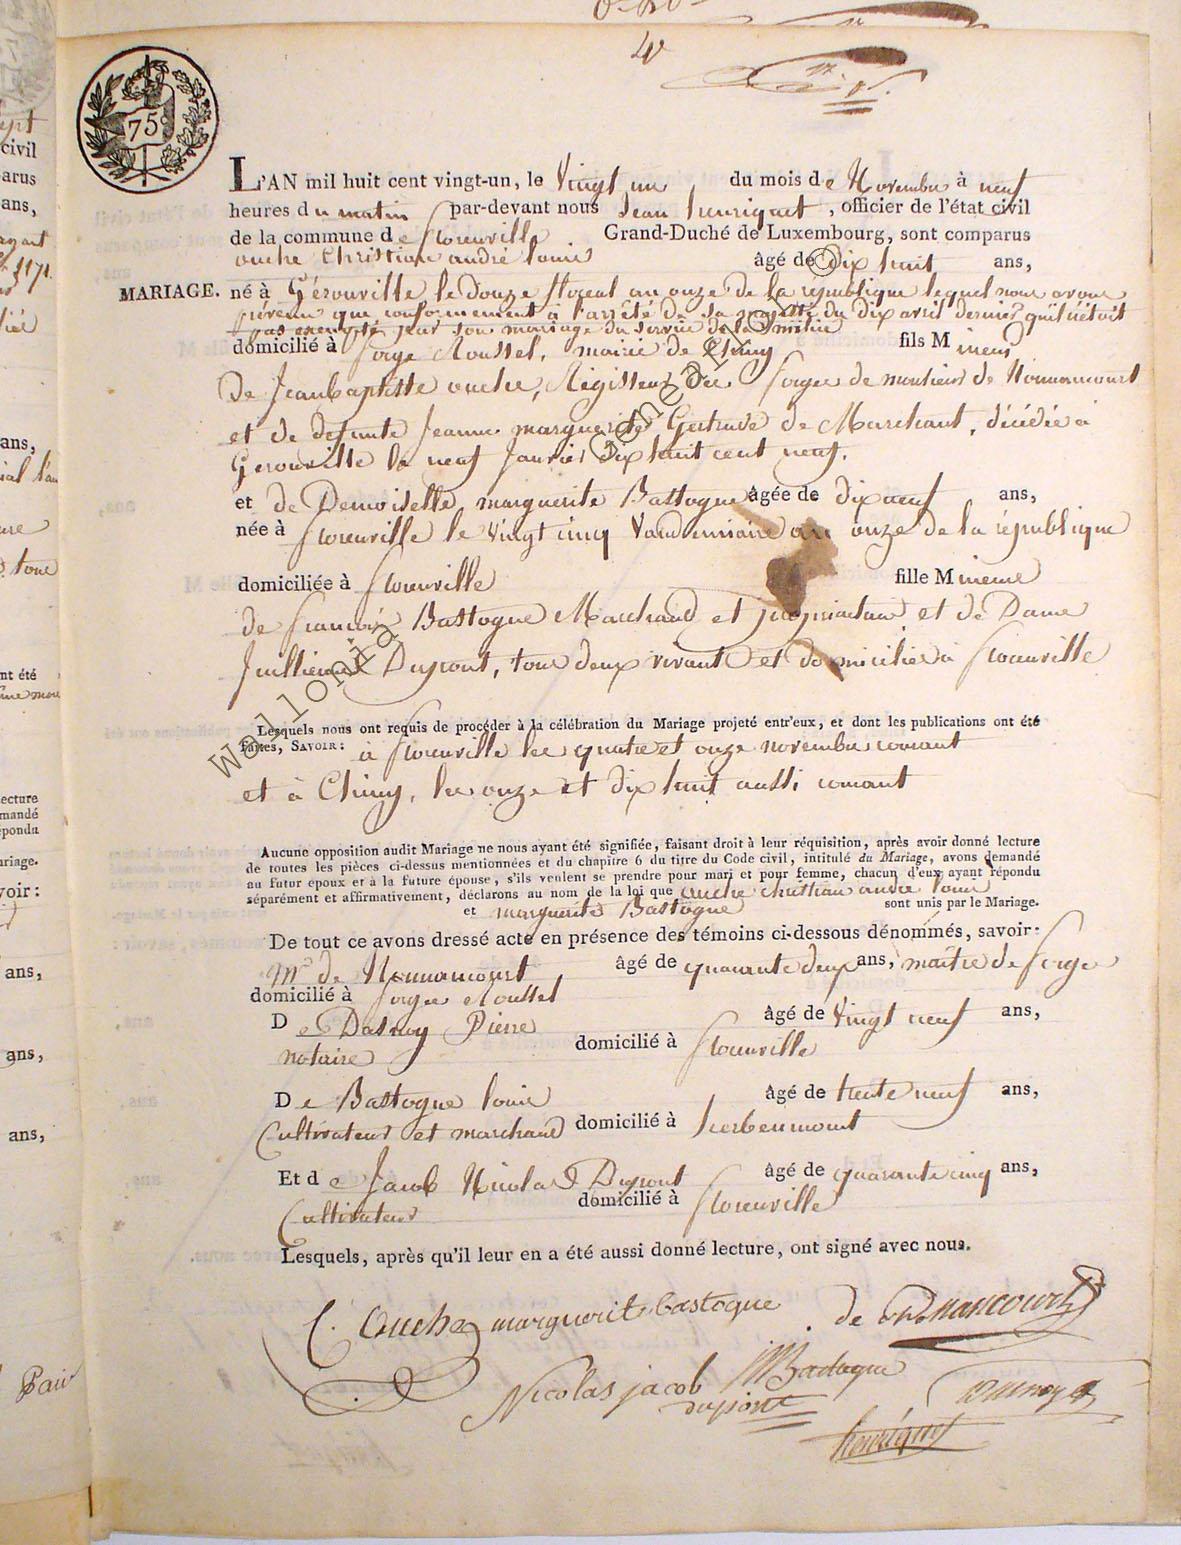 75
L'AN mil huit cent vingt-un, le Vingt un du mois de Novembre à neuf
heures du matin par-devant nous Jean henriquet, officier de l'état civil
de la commune de florenville Grand-Duché de Luxembourg, sont comparus
ouche Christian andré louis âgé de dix huit ans,
MARIAGE. né à Gérouville le douze floreal an onze de la république lequel nous avons
prévenu que conformement à l'arrêté de sa majesté du dix avril dernier qu'il n'étoit
pas exempté par son mariage du service de la milice
domicilié à forge Roussel, mairie de Chiny fils Mineur
de Jean baptiste ouche, Régisseur des forges de monsieur de Nonnancourt
et de defunte Jeanne marguerite Gertrude de Marchant, décédée à
Gerouville le neuf Janvier dix huit cent neuf.
et de Demoiselle marguerite Bastogne âgée de dix neuf ans,
née à florenville le vingt cinq Vandemiaire an onze de la république
domiciliée à florenville fille Mineure
de francois Bastogne Marchand et propriétaire et de Dame
Juillienne Dupont, tous deux vivant et domiciliés à florenville
Lesquels nous ont requis de procéder à la célébration du Mariage projeté entr'eux, et dont les publications ont été
faites, SAVOIR: à florenville les quatre et onze novembre courant
et à Chiny, les onze et dix huit aussi courant
Aucune opposition audit Mariage ne nous ayant été signifiée, faisant droit à leur réquisition, après avoir donné lecture
de toutes les pièces ci-dessus mentionnées et du chapitre 6 du titre du Code civil, intitulé du Mariage, avons demandé
au futur époux et à la future épouse, s'ils veulent se prendre pour mari et pour femme, chacun d'eux ayant répondu
séparément et affirmativement, déclarons au nom de la loi que ouche christian andré louis
et marguerite Bastogne sont unis par le Mariage.
De tout ce avons dressé acte en présence des témoins ci-dessous dénommés, savoir:
Mr de Nonnancourt âgé de quarante deux ans, maître de forge
domicilié à forge Roussel
De Dasnoy Pierre âgé de Vingt neuf ans,
notaire domicilié à florenville
De Bastogne louis âgé de trente neuf ans,
Cultivateur et marchand domicilié à herbeumont
Et de Jacob Nicolas Dupont âgé de quarante cinq ans,
Cultivateur domicilié à florenville
Lesquels, après qu'il leur en a été aussi donné lecture, ont signé avec nous.
C. Ouche marguerite bastogne de Nonnancourt
Nicolas jacob dupont Bastogne Dasnoy
henriquet
Wallonia © Généalor